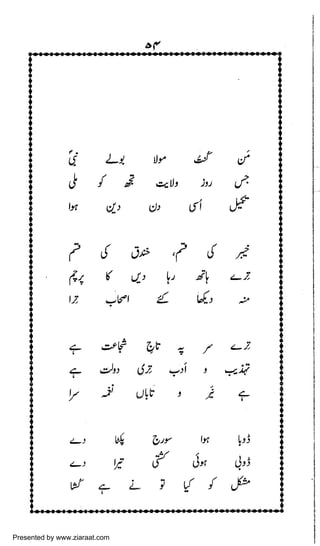 ۵۴
مَن کُنتُ مولا بولے نبیؐ
جس روز ولایت تجھ کو ملی
تکمیل اُسی دن دین ہوا
خیبر کی قسم، خندق کی قسم
ترے ہاتھ رہا دیں کا پرچم
منہ دیکھا کئے اصحاب ترا
ترے سر پہ تاجِ شجاعت ہے
تہذیب و ادب تری دولت ہے
ہے نیّر و تاباں نغمہ سرا
ڈوبا ہوا سورج پلٹا دے
ڈوبی ہوئی کشتی تیرا دے
مشکل کو کیا تو نے ہے کشا
Presented by www.ziaraat.com